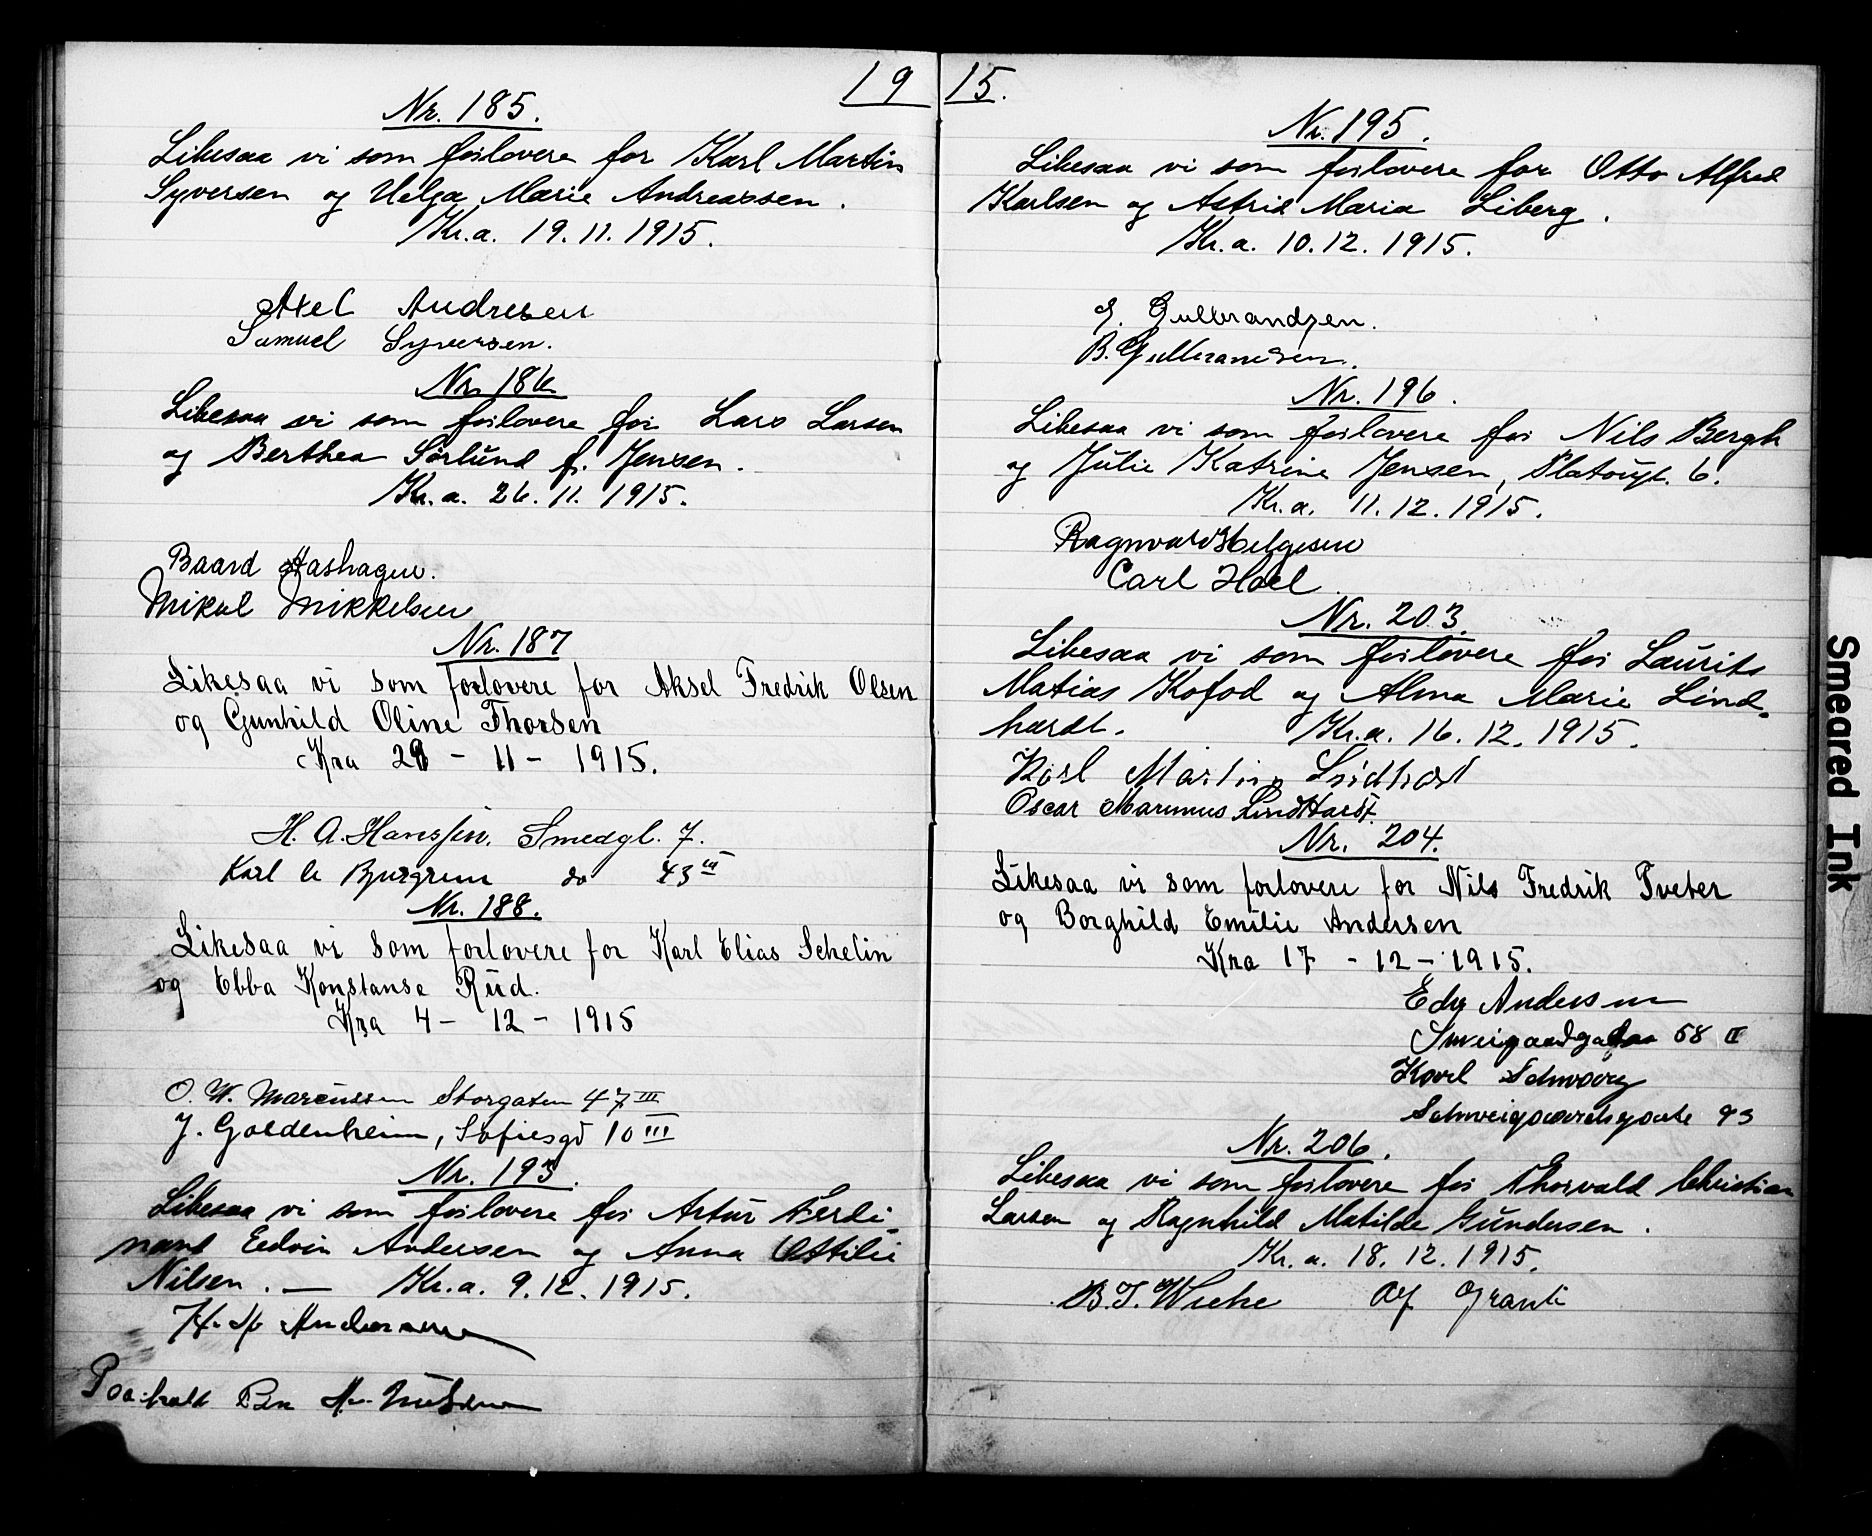 19 15.
Nr. 185.
Likesaa vi som forlovere for Karl Martin
Syversen og Helga Marie Andreassen.
Kr.a. 19.11.1915.
Axel Andresen
Samuel Syversen.
Nr. 186.
Likesaa vi som forlovere for Lars Larsen
og Berthea Sørlund f. Jensen.
Kr.a. 26.11.1915.
Baard Aashagen.
Mikal Mikkelsen
Nr. 187
Likesaa vi som forlovere for Aksel Fredrik Olsen
og Gunhild Oline Thorsen
Kra - 11 - 1915.
H. A. Hanssen. Smedgt. 7.
Karl do 43 III
Nr. 188.
Likesaa vi som forlovere for Karl Elias Schelin
og Ebba Konstanse Rud.
Kra 4 - 12 - 1915
O. W. Marcussen Storgaten 47 III
J. Goldenheim, Sofiesgt 10 III
Nr. 193.
Likesaa vi som forlovere for Artur Ferdi-
nand Edvin Andersen og Anna Ottilie
Nilsen. — Kr.a. 9.12.1915.
Andersen
Nr. 195.
Likesaa vi som forlovere for Otto Alfred
Karlsen og Astrid Maria Liberg.
Kr.a. 10.12.1915.
G. Gulbrandsen.
B. Gulbrandsen.
Nr. 196.
Likesaa vi som forlovere for Nils Bergh
og Julie Katrine Jensen, Platougt. 6.
Kr.a. 11.12.1915.
Ragnvald Helgesen
Carl Hoel
Nr. 203.
Likesaa vi som forlovere for Laurits
Matias Kofod og Alma Marie Lind-
hardt. Kr.a. 16.12.1915.
Karl Martin Lindhardt
Oscar Marinus Lindhardt
Nr. 204.
Likesaa vi som forlovere for Nils Fredrik Tveter
og Borghild Emilie Andersen
Kra 17 - 12 - 1915.
Edv Andersen
58 II
Karl Schwarz
Schweigaardsgate 93
Nr. 206.
Likesaa vi som forlovere for Thorvald Christian
Larsen og Ragnhild Matilde Gundersen.
Kr.a. 18.12.1915.
B. T. Wiche
Smeared Ink